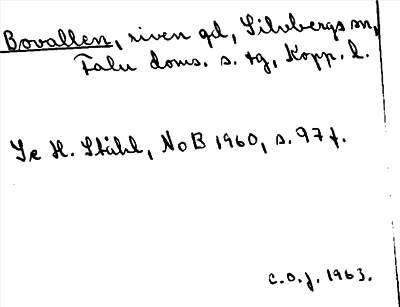 Bovallen, riven gd, Silvbergs sn,
Falu doms. s. tg, Kopp. l.
Se H. Ståhl, NoB 1960, s. 97 f.
c.o.j. 1963.